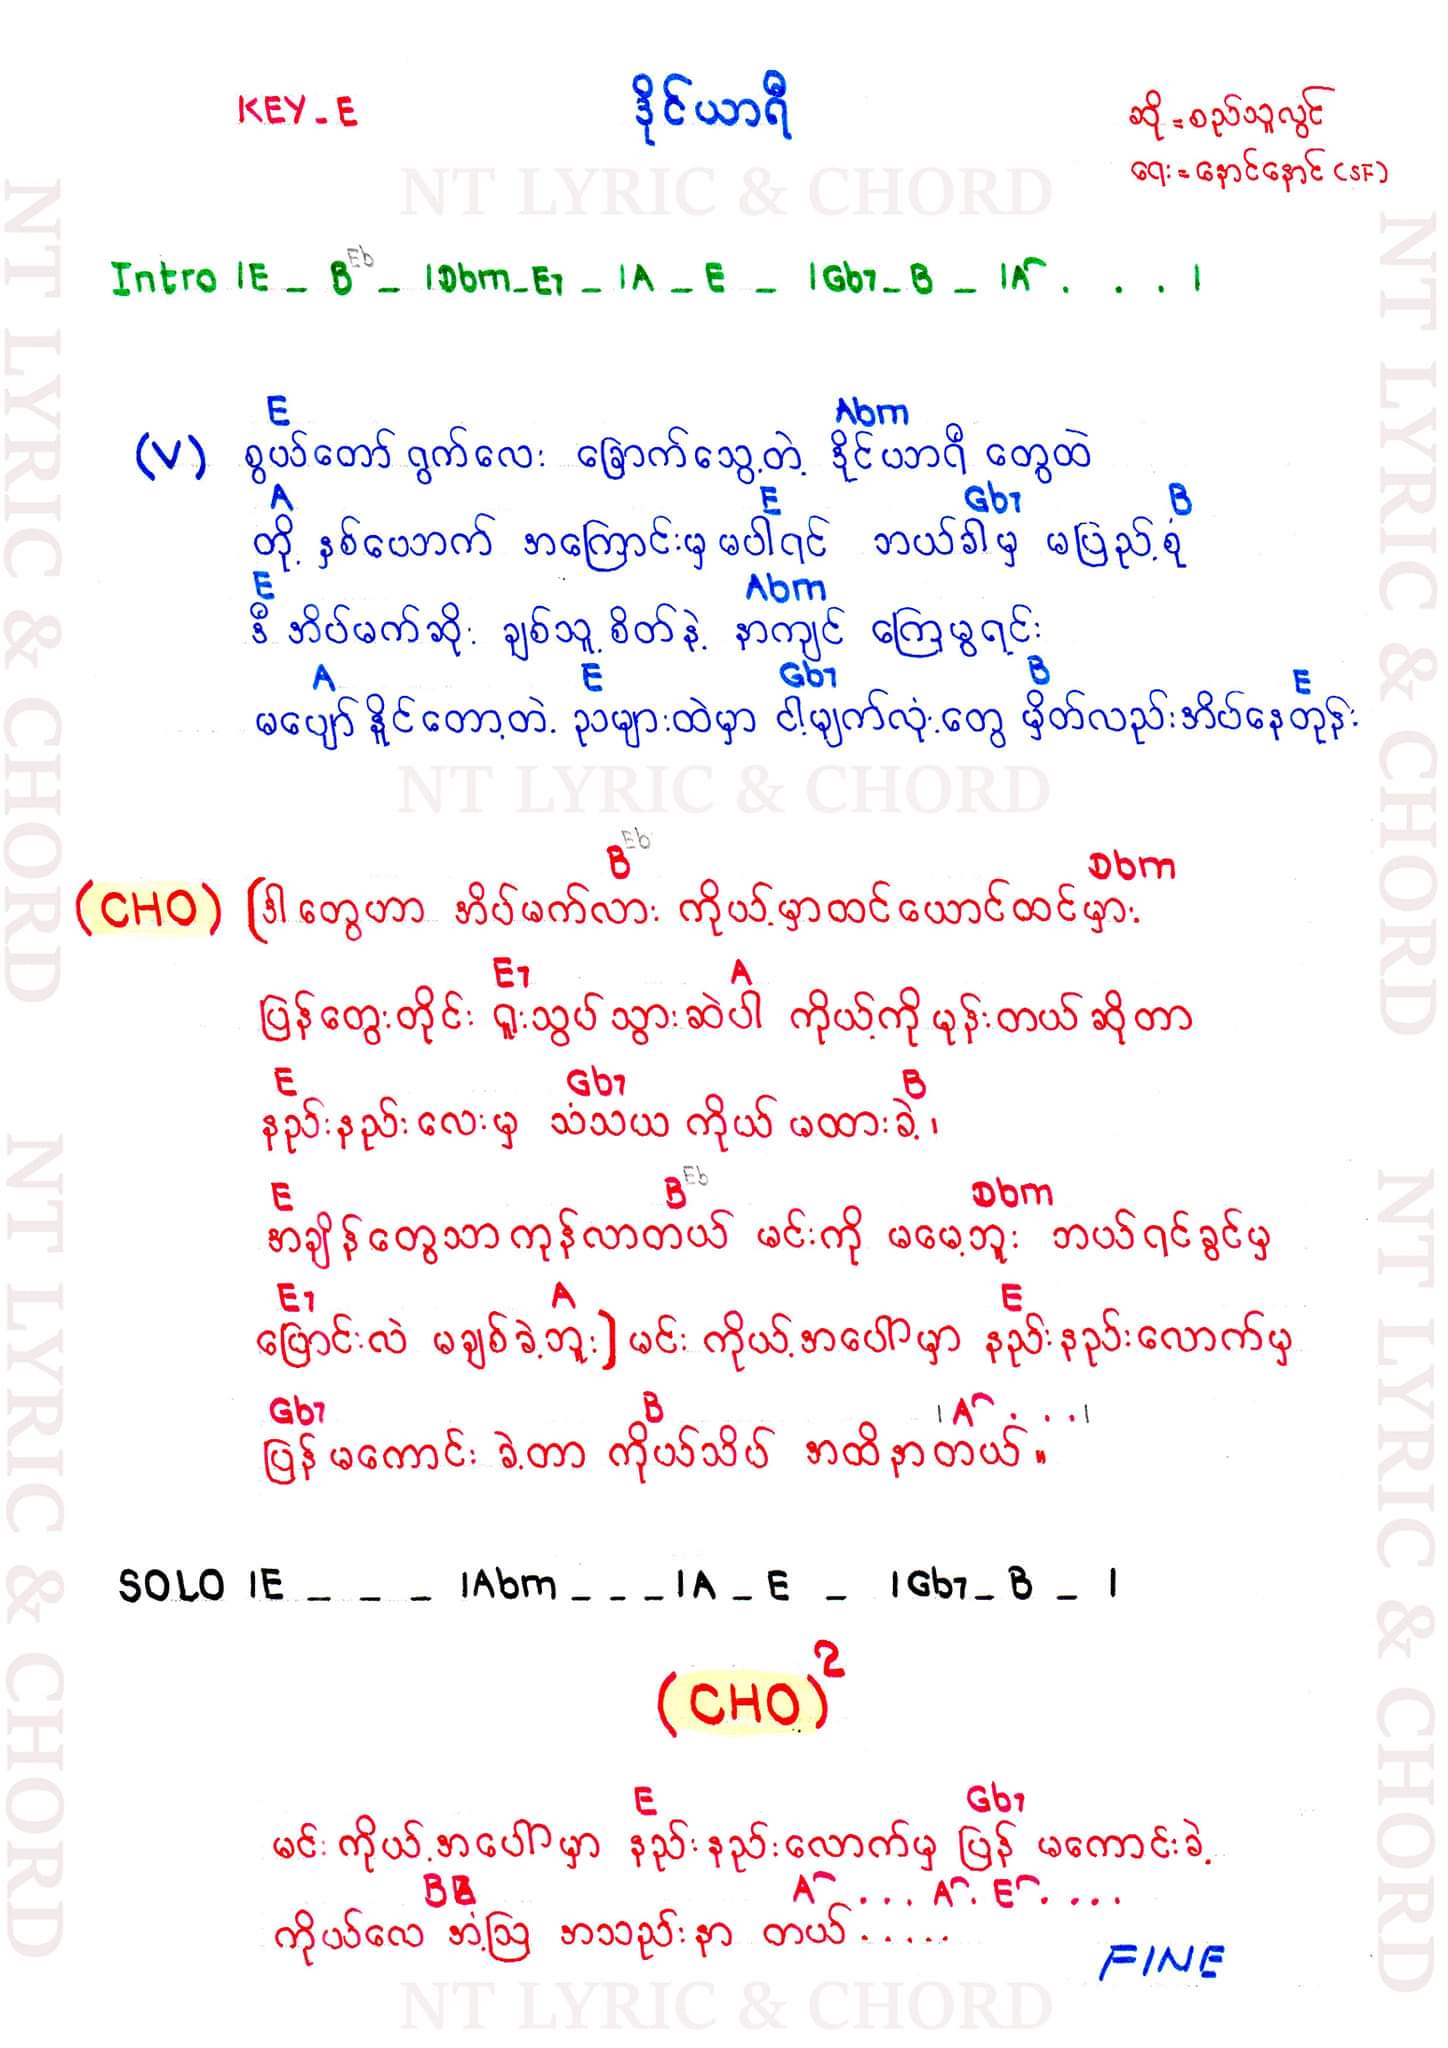 KEY-E
ဒိုင်ယာရီ
ဆို = စည်သူလွင်
ရေး = နောင်နောင် (SF)
NT LYRIC & CHORD
Intro |E _ B Eb _ |Dbm_E7 _ |A _ E _ |Gb7_B _ |A . . . |
E Abm
(V) စွယ်တော်ရွက်လေး ခြောက်သွေ့တဲ့ ဒိုင်ယာရီ တွေထဲ
A E Gb7 B
တို့ နှစ်ယောက် အကြောင်းမှ မပါရင် ဘယ်ခါမှ မပြည့်စုံ
E Abm
ဒီ အိပ်မက်ဆိုး ချစ်သူ့ စိတ်နဲ့ နာကျင် ကြေမွရင်း
A E Gb7 B E
မပျော်နိူင်တော့တဲ့ ညများထဲမှာ ငါ့မျက်လုံးတွေ မှိတ်လည်းအိပ်နေတုန်း
NT LYRIC & CHORD
B Eb Dbm
(CHO) [ဒါတွေဟာ အိပ်မက်လား ကိုယ့်မှာထင်ယောင်ထင်မှား
E7 A
ပြန်တွေးတိုင်း ရူးသွပ်သွားဆဲပါ ကိုယ့်ကိုမုန်းတယ်ဆိုတာ
E Gb7 B
နည်းနည်းလေးမှ သံသယ ကိုယ် မထားခဲ့၊
E B Eb Dbm
အချိန်တွေသာကုန်လာတယ် မင်းကို မမေ့ဘူး ဘယ်ရင်ခွင်မှ
E7 A E
ပြောင်းလဲ မချစ်ခဲ့ဘူး] မင်း ကိုယ့်အပေါ်မှာ နည်းနည်းလောက်မှ
Gb7 B |A . . . |
ပြန်မကောင်း ခဲ့တာ ကိုယ်သိပ် အထိနာတယ်။
SOLO |E _ _ _ |Abm _ _ _ |A _ E _ |Gb7_B _ |
(CHO)2
E Gb7
မင်းကိုယ့်အပေါ်မှာ နည်းနည်းလောက်မှ ပြန် မကောင်းခဲ့
B A . . . A . E . . . .
ကိုယ်လေ အံ့ဩ အသည်းနာ တယ်.....
FINE
NT LYRIC & CHORD
NT LYRIC & CHORD
NT LYRIC & CHORD
NT LYRIC & CHORD
NT LYRIC & CHORD